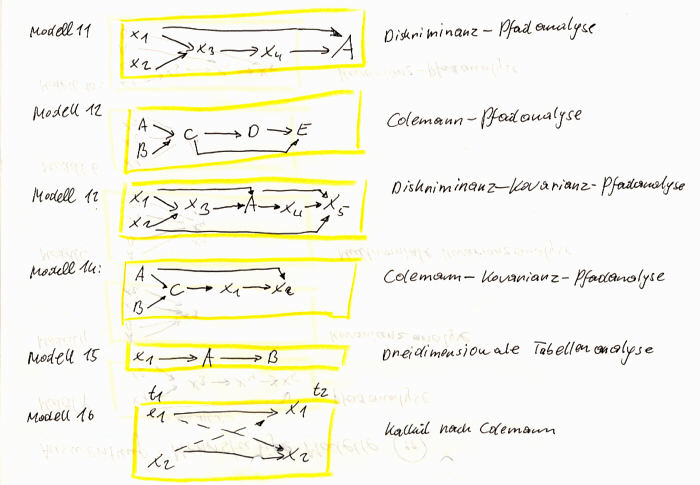 Modell 11 x1 x2 x3 x4 A Diskriminanz-Pfadanalyse
Modell 12 A B C D E Colemann-Pfadanalyse
Modell 12 x1 x2 x3 A x4 x5 Diskriminanz-Kovarianz-Pfadanalyse
Modell 14: A B C x1 x2 Colemann-Kovarianz-Pfadanalyse
Modell 15 x1 A B Dreidimensionale Tabellenanalyse
t1 t2
Modell 16 x1 x1 x2 x2 Kalkül nach Colemann